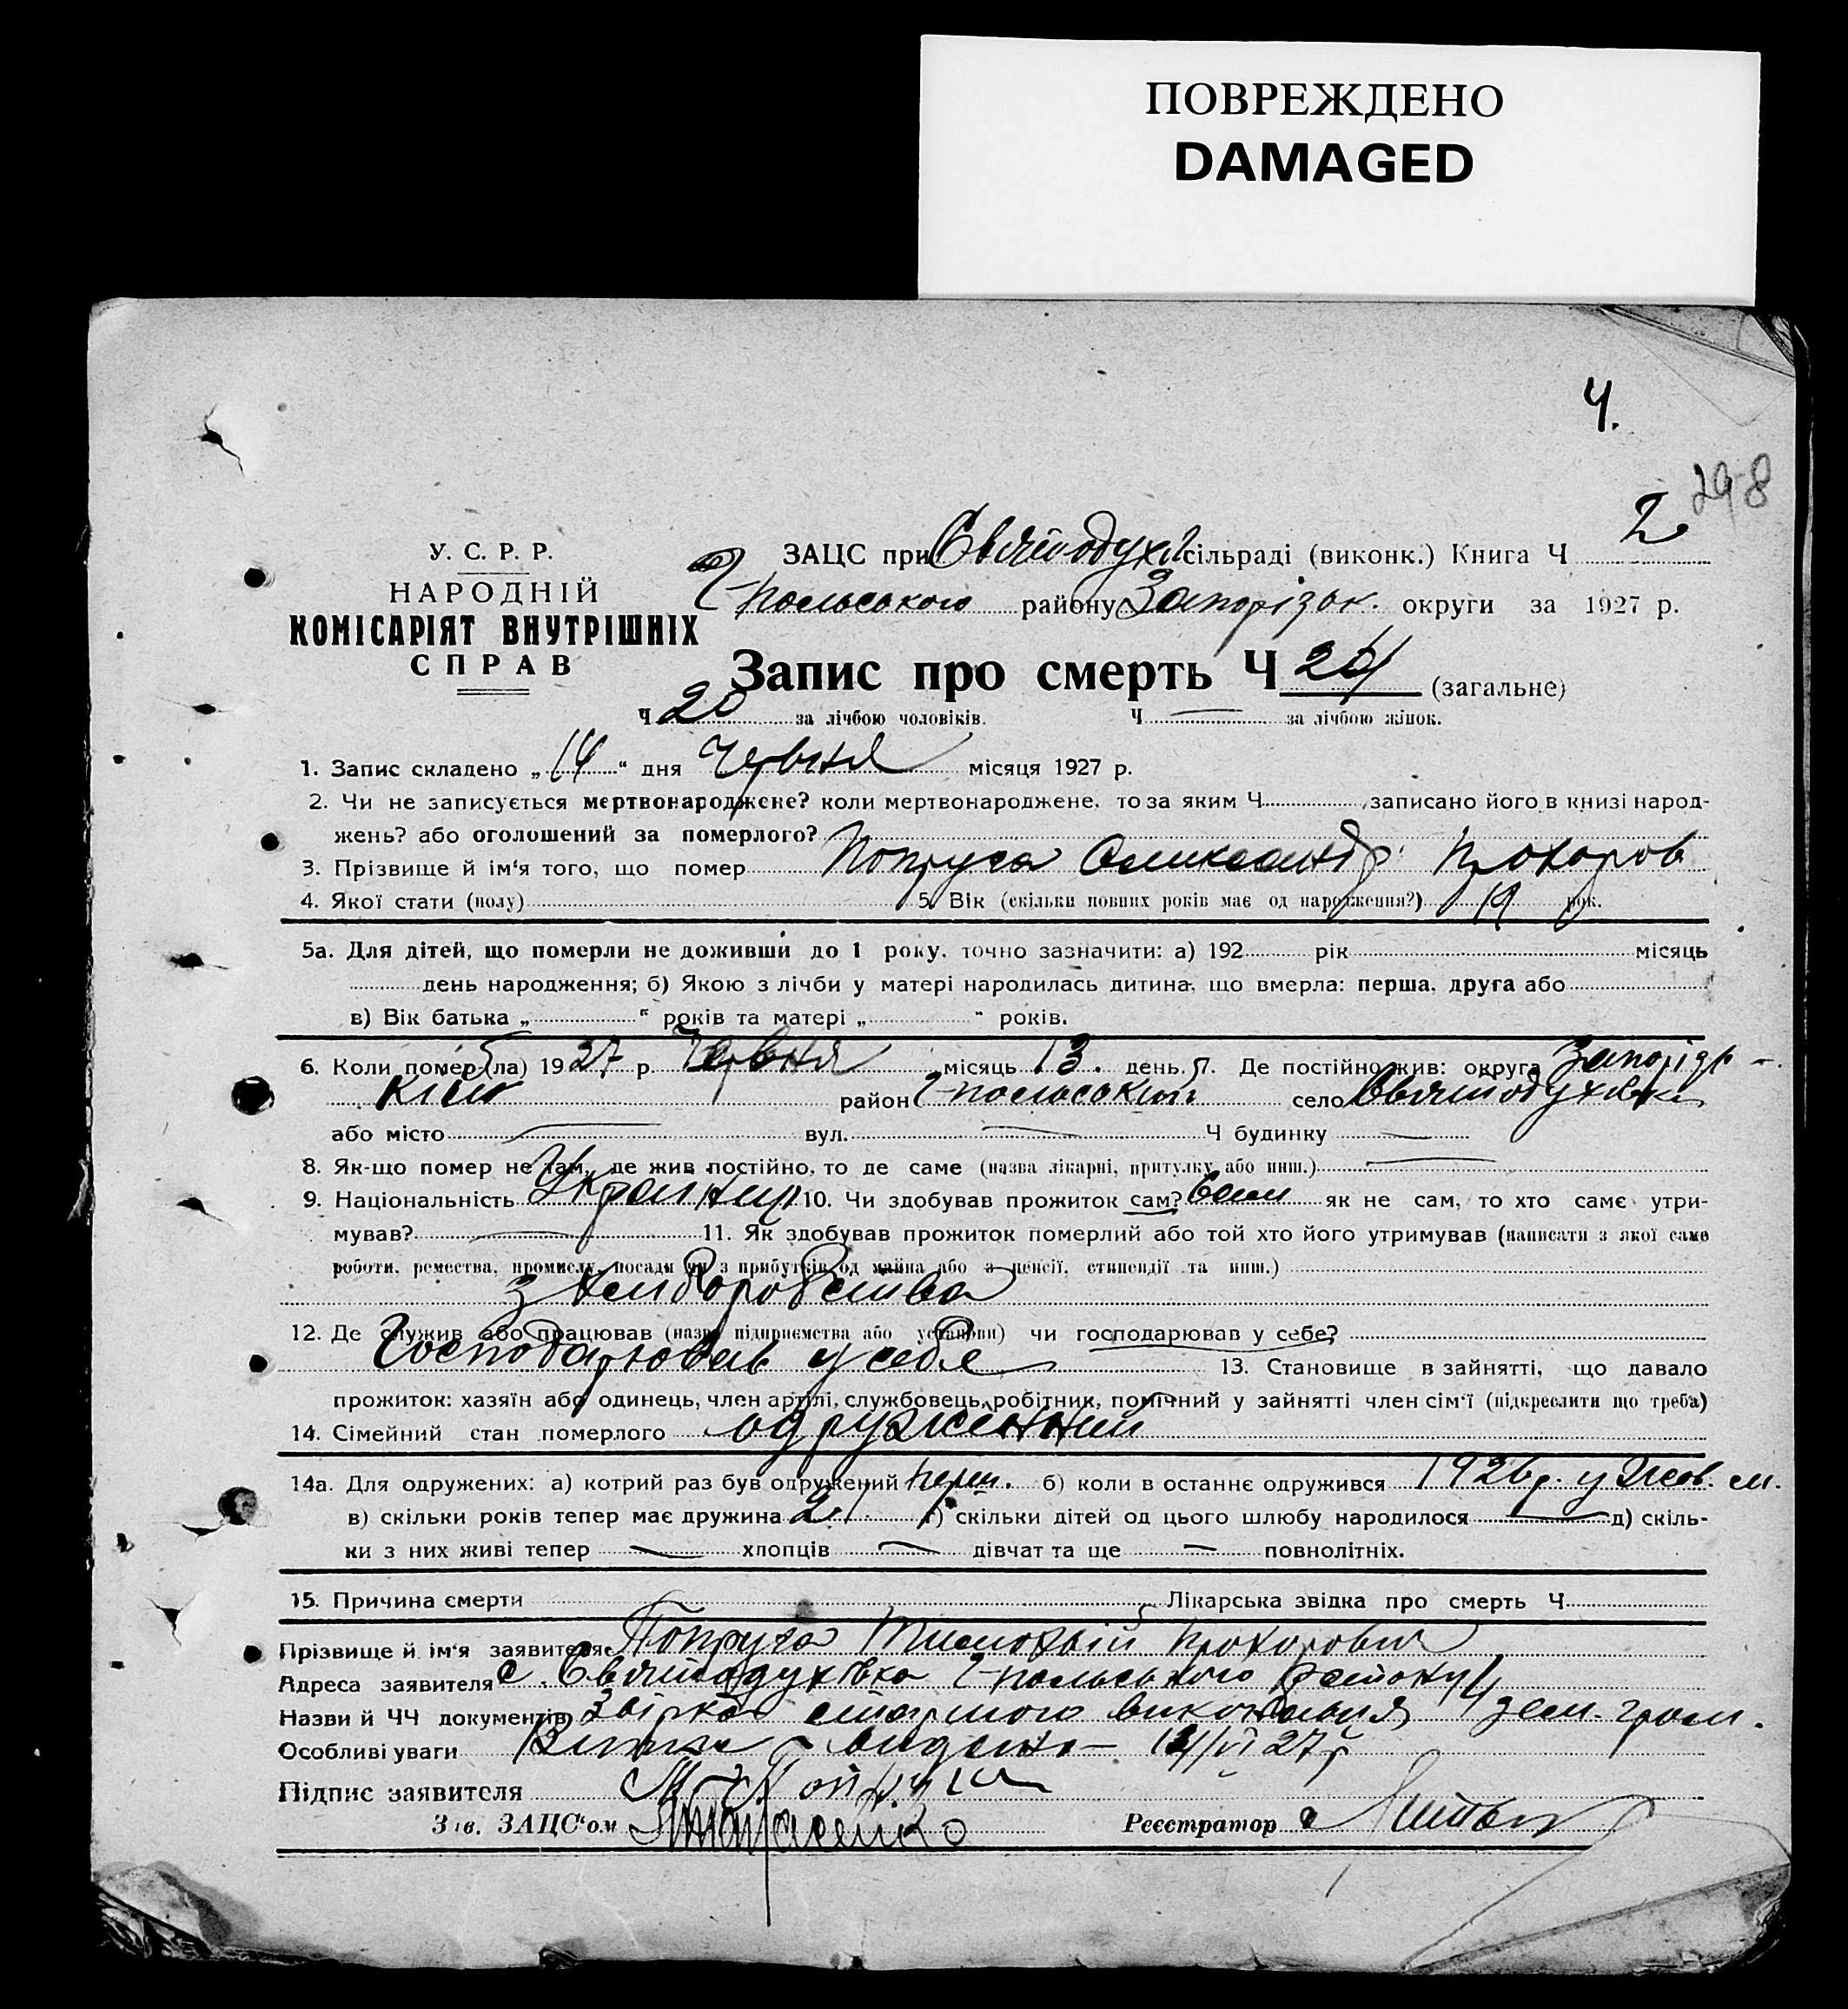 ПОВРЕЖДЕНО
DAMAGED
4.
298
У. С. Р. Р.
НАРОДНІЙ
КОМІСАРІЯТ ВНУТРІШНІХ
СПРАВ
ЗАЦС при Святодухів сільраді (виконк.) Книга Ч 2
Г-польського району Запорізьк. округи за 1927 р.
Запис про смерть Ч 24 (загальне)
Ч 20 за лічбою чоловіків. Ч — за лічбою жінок.
1. Запис складено „14“ дня Червня місяця 1927 р.
2. Чи не записується мертвонароджене? коли мертвонароджене, то за яким Ч. записано його в книзі народ-
жень? або оголошений за померлого?
3. Прізвище й ім‘я того, що помер Попруга Олександр Прохоров
4. Якої стати (полу) 5. Вік (скільки повних років має од народження?) 19 рок.
5а. Для дітей, що померли не доживши до 1 року, точно зазначити: а) 192 рік місяць
день народження; б) Якою з лічби у матері народилась дитина, що вмерла: перша, друга або
в) Вік батька „ “ років та матері „ “ років.
6. Коли помер (ла) 1927 р. Червня місяць 13. день. 7. Де постійно жив: округа Запорізь-
кій район Г-польський село Святодухівка
або місто — вул. — Ч будинку —
8. Як-що помер не там, де жив постійно, то де саме (назва лікарні, притулку або инш.) —
9. Національність Українець 10. Чи здобував прожиток сам? Сам як не сам, то хто саме утри-
мував? — 11. Як здобував прожиток померлий або той хто його утримував (написати з якої саме
роботи, ремества, промислу, посади чи з прибутків од майна або з пенсії, стипендії та инш.)
з хліборобства
12. Де служив або працював (назва підприємства або установи) чи господарював у себе?
Господарював у себе 13. Становище в зайнятті, що давало
прожиток: хазяїн або одинець, член артілі, службовець, робітник, помічний у зайнятті член сім‘ї (підкреслити що треба)
14. Сімейний стан померлого одружений
14а. Для одружених: а) котрий раз був одружений перш. б) коли в останнє одружився 1926 р. у Жов. м.
в) скільки років тепер має дружина 21 г) скільки дітей од цього шлюбу народилося — д) скіль-
ки з них живі тепер — хлопців — дівчат та ще — повнолітніх.
15. Причина смерти Лікарська звідка про смерть Ч
Прізвище й ім‘я заявителя Попруга Тимофій Прохорович
Адреса заявителя с. Святодухівка Г-польського району
Назви й ЧЧ документів Звірка старшого виконавця 4 зем. гром.
Особливі уваги видано 14/VI 27 р
Підпис заявителя Т. Попруга
Зав. ЗАЦС‘ом Тарасенко Реєстратор